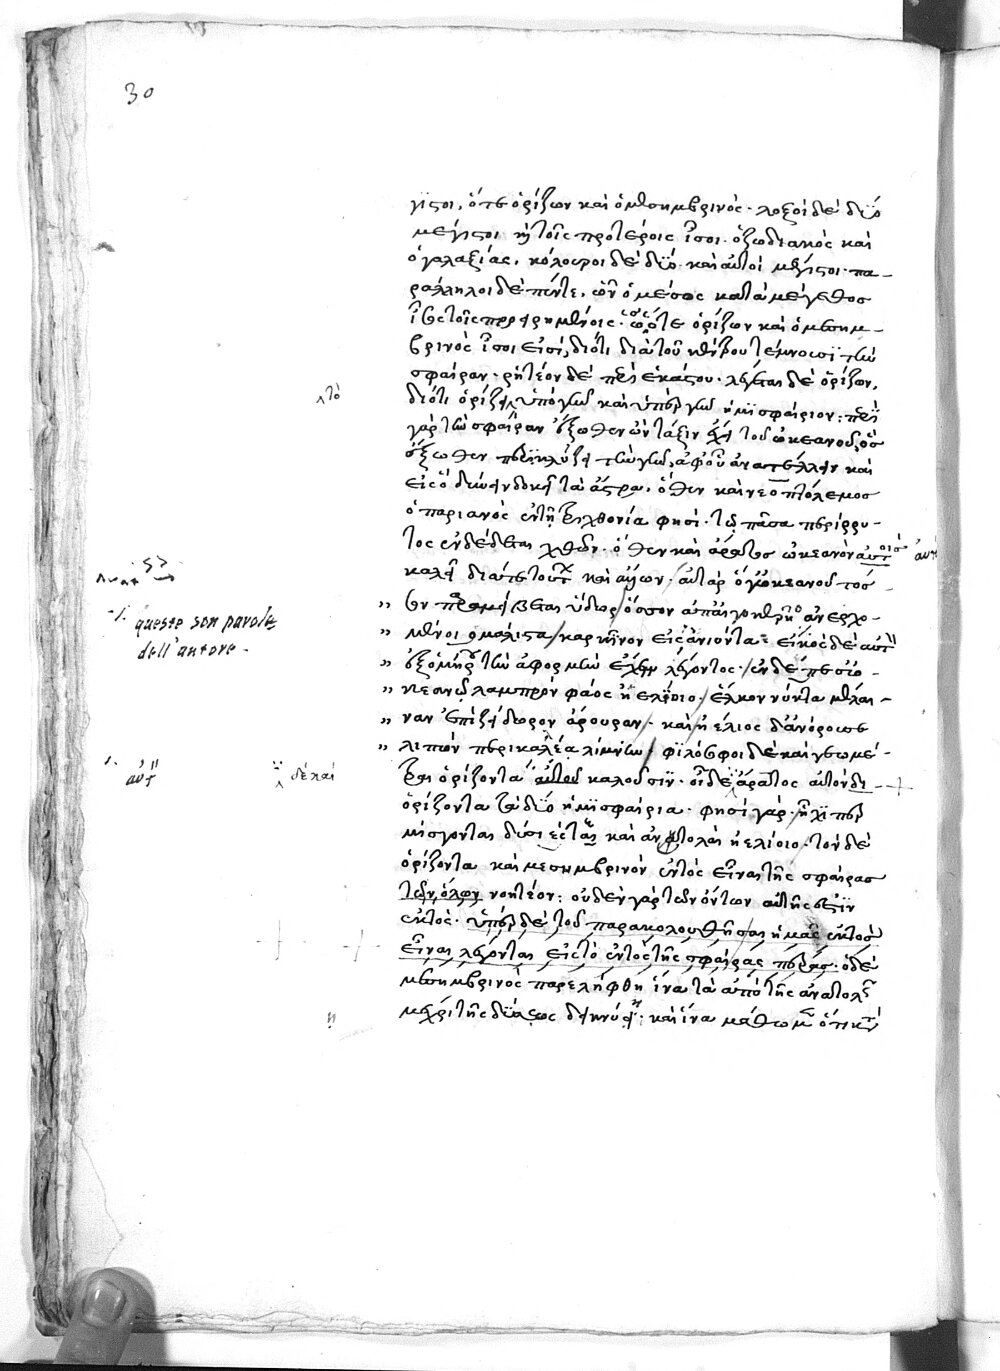 30
γιστοι, ὅτε ὁρίζων καὶ ὁ μεσημβρινός· λοξοὶ δὲ δύο
μέγιστοι τοῖς προτέροις ἴσοι· ὁ ζωδιακὸς καὶ
ὁ γαλαξίας. κόλουροι δὲ δύο καὶ αὐτοὶ μέγιστοι· πα-
ράλληλοι δὲ πέντε, ὧν ὁ μέσος κατὰ μέγεθος
ἴσος τοῖς προειρημένοις· ὅτε ὁρίζων καὶ ὁ μεσημ-
βρινὸς ἴσοι εἰσί, διότι διὰ τοῦ κέντρου τέμνουσι τὴν
σφαῖραν· ῥητέον δὲ περὶ ἑκάστου. λέγεται δὲ ὁρίζων,
διότι ὁρίζει ὑπὸ γῆν καὶ ὑπὲρ γῆν ἡμισφαίριον· περὶ
^τὸ
γὰρ τὴν σφαῖραν ἔξωθεν ὢν τάξιν ἔχει τοῦ ὠκεανοῦ, ὃς
ἔξωθεν περικλύζει τὴν γῆν, ἀφ' οὗ ἀνατέλλειν καὶ
εἰς ὃ δύνειν δοκεῖ τὰ ἄστρα. ὅθεν καὶ νεοπτόλεμος
ὁ παριανὸς ἐν τῇ τριχθονίᾳ φησί· τῷ πᾶσα περίρρυ-
τος ἐνδέδεται χθών. ὅθεν καὶ ἄρατος ὠκεανὸν
καλεῖ διὰ τε τούτων καὶ αὐτὰρ ὅγ' ὠκεανοῦ τόσ-
σον παραμείβεται ὕδωρ / ὅσσον ἀπ' αἰγοκερῆος ἀνερχο-
μένοιο μάλιστα / καρκίνον εἰς ἀνιόντα· εἰκὸς δὲ
ἐξ ὁμήρου τὴν ἀφορμὴν ἔχειν λέγοντος· / ἐν δ' ἔπεσ' ὠ-
κεανῷ λαμπρὸν φάος ἠελίοιο / ἕλκον νύκτα μέλαι-
ναν ἐπὶ ζείδωρον ἄρουραν. καὶ / ἠέλιος δ' ἀνόρουσε
λιπὼν περικαλλέα λίμνην / φιλόσοφοι δὲ καὶ γεωμέ-
τραι ὁρίζοντα αὐτὸν καλοῦσιν. οἶδε ἄρατος
δὲ καὶ
ὁρίζοντα τὰ δύο ἡμισφαίρια· φησὶ γάρ· / ἧχι περ
μίσγονται δύσιές τε καὶ ἀντολαὶ ἠελίοιο. τὸν δὲ
ὁρίζοντα καὶ μεσημβρινὸν ἐντὸς εἶναι τῆς σφαίρας
τῶν ὅλων νοητέον: οὐδὲν γὰρ τῶν ὄντων αὐτῆς ἐστὶν
ἐκτός. ὑπὲρ δὲ τοῦ παρακολουθῆσαι ἡμᾶς ἐκτὸς
εἶναι λέγονται εἰς τὸ ἐντὸς τῆς σφαίρας πέρας. ὁ δὲ
μεσημβρινὸς παρελήφθη ἵνα τὰ ἀπὸ τῆς ἀνατολῆς
μέχρι τῆς δύσεως καὶ ἵνα μάθωμεν
queste son parole
dell'autore.